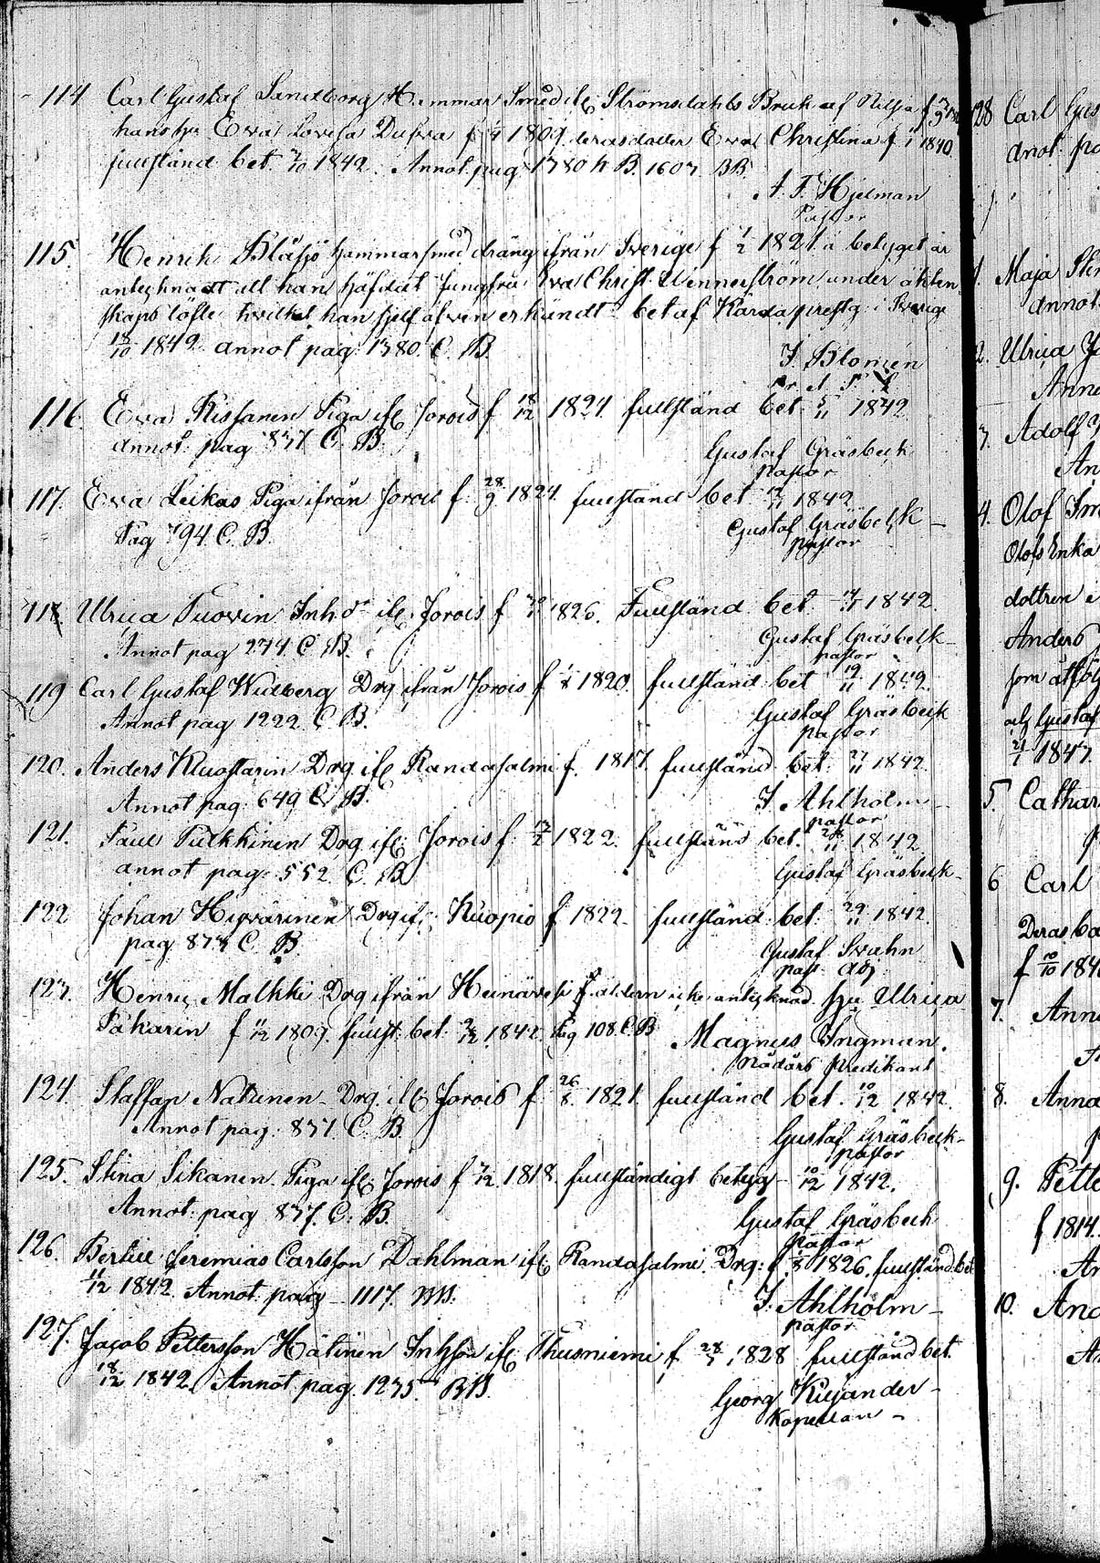 114 Carl Gustaf Sandborg Hammar Smed ifr Strömsdahls Bruk af Nilsiä f
hans hu Eva Lovisa Dufva f 1809 deras dotter Eva Christina f 1840
fullständ bet 1842. Annot pag 1380 h B. 1607 BB.
A. F. Hjelman
Pastor
115. Henrik Blåsjö hammarsmeds dräng ifrån Sverige f 1/2 1821 å betyget är
antecknadt att han häfdat Jungfru Eva Christ. Wennerström under äkten
skaps löfte hvilket han sjelf äfven erkändt. bet af Karda prestg. i Sverige
18/10 1842 annot pag: 1380. C. B.
J. Blomén
116. Eva Rissanen Piga ifr Jorois f 18/12 1824 fullständ bet 5/11 1842
annot: pag 837 C. B.
Gustaf Gräsbeck
pastor
117. Eva Leikas Piga ifrån Jorois f. 28/9 1824 fullständ bet 1842
Pag 794 C. B.
Gustaf Gräsbeck
pastor
118 Ulrica Tuovin Inh ifr Jorois f 1826. Fullständ bet. 1842.
Annot pag 274 C. B.
Gustaf Gräsbeck
pastor
119 Carl Gustaf Widberg Drg ifrån Jorois f 1820. fullständ bet 19/11 1842.
Annot pag 1222 C. B.
Gustaf Gräsbeck
pastor
120. Anders Kuostarin Drg ifr Randasalmi f. 1817. fullständ bet. 27/11 1842.
Annot pag. 649 C. B.
J. Ahlholm
pastor
121. Paul Pulkkinen Drg ifr Jorois f. 1822. fullständ bet. 28/11 1842.
annot pag: 552 C. B.
Gustaf Gräsbeck
122 Johan Hyvärinen Drg ifr Kuopio f 1822 fullständ bet 29/11 1842.
pag 873 C. B.
Gustaf Svahn
past. adj.
123. Henric Malkki Drg ifrån Heinävesi f åldern icke antecknad hu Ulrica
Pakarin f 11/12 1809. fullst. bet. 1842 Pag 108 C. B
Magnus Ingman.
Nådårs Predikant
124 Staffan Natunen Drg. ifr Jorois f 26/8 1821 fullständ bet. 10/12 1842.
Annot pag: 837 C. B.
Gustaf Gräsbeck
pastor
125. Stina Sikanen Piga ifr Jorois f 1818. fullständigt betyg 10/12 1842.
Annot. pag 877. C. B.
Gustaf Gräsbeck
pastor
126. Bertill Jeremias Carlsson Dahlman ifr Randasalmi Drg: f 1826. fullständ bet
11/12 1842. Annot. pag 1117.
J. Ahlholm
pastor
127. Jacob Pettersson Hälinen Inhson ifr Thusniemi f 1828 fullständ bet.
18/12 1842. Annot. pag. 1235 BB.
Georg Kujander
Kapellan
128 Carl Gus
anot pa
1. Maja Stin
annot
2. Ulrica
Ann
3. Adolf
An
4. Olof Im
Olofs Enka
dottren
Anders
som åtföl
Gustaf
1847
5. Cathar
6 Carl
Deras ba
f 10/10 184
7. Anna
8. Anna
9. Pette
f 1814.
An
10. And
An